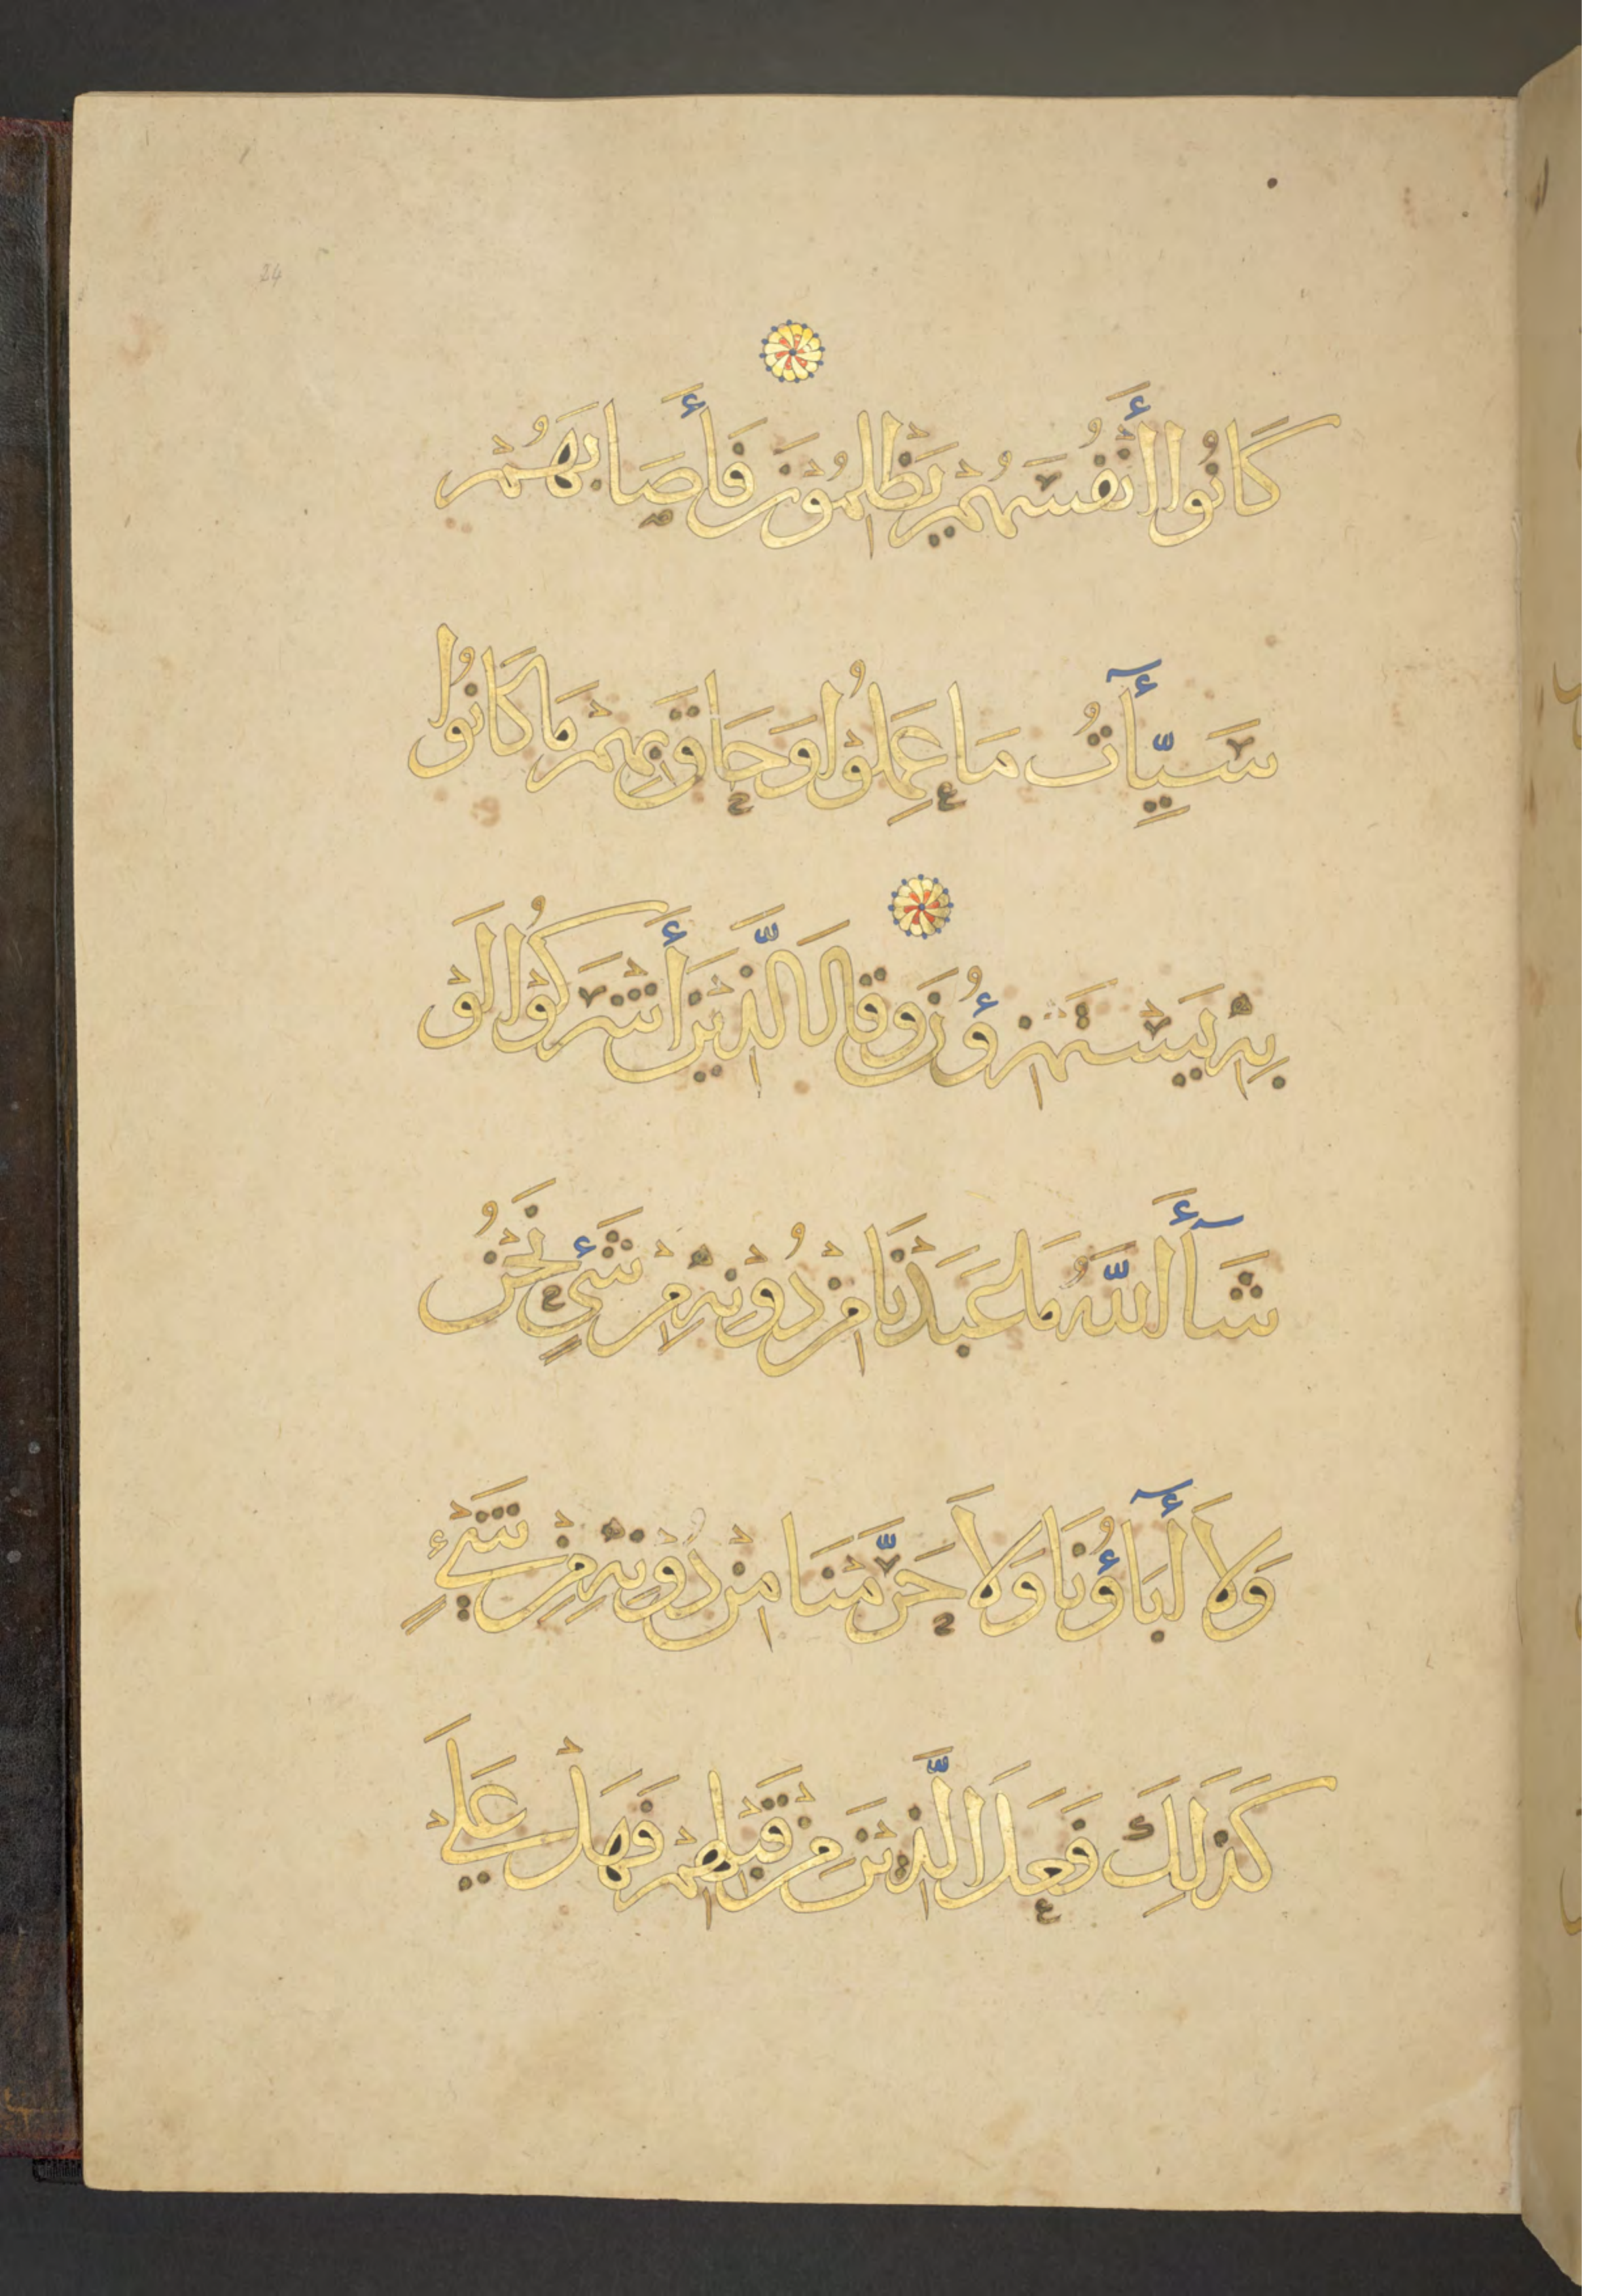 24
كَانُوا أَنْفُسَهُمْ يَظْلِمُوْنَ فَأَصَابَهُمْ
سَيِّأٓتُ مَا عَمِلُوْا وَحَاقَ بِهِمْ مَا كَانُوْا
بِهِ يَسْتَهْزِؤُنَ وَقَالَ الَّذِيْنَ أَشْرَكُوْا لَوْ
شَآأَ اللَّهُ مَا عَبَدْنَا مِنْ دُوْنِهِ مِنْ شَيْءٍ نَحْنُ
وَلَا أٓبَاؤُنَا وَلَا حَرَّمْنَا مِنْ دُوْنِهِ مِنْ شَيْءٍ
كَذَلِكَ فَعَلَ الَّذِيْنَ مِنْ قَبْلِهِمْ فَهَلْ عَلَى